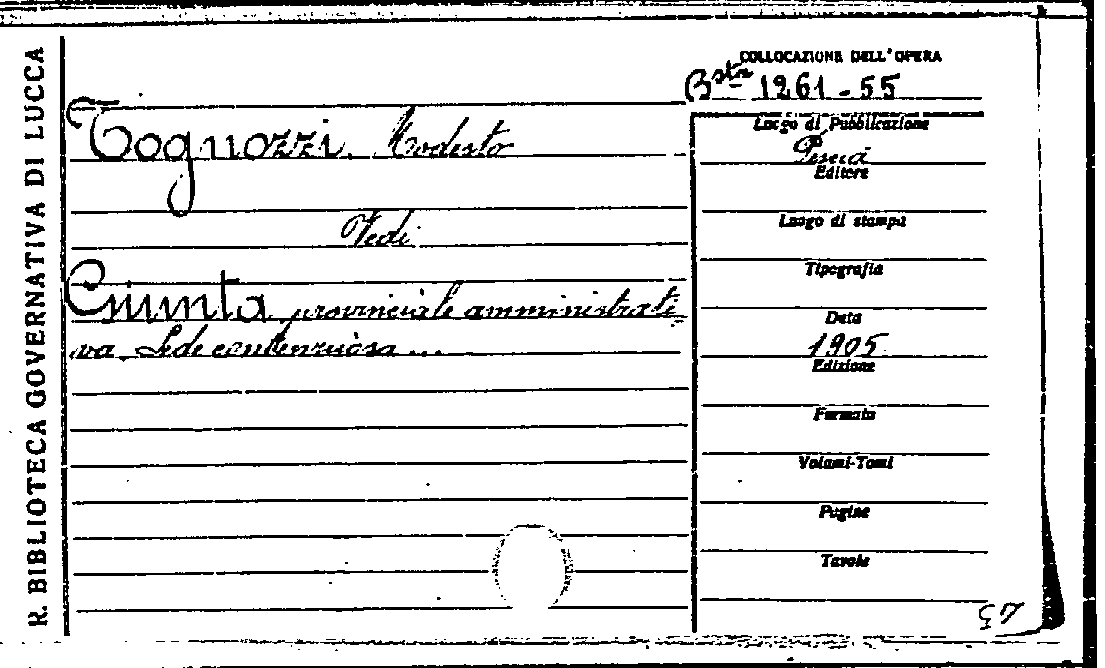 R. BIBLIOTECA GOVERNATIVA DI LUCCA
COLLOCAZIONE DELL'OPERA
Bsta 1261-55
Tognozzi Modesto
Vedi
Giunta provinciale amministrati
va. Sede contenziosa...
Luogo di Pubblicazione
Pescia
Editore
Luogo di stampa
Tipografia
Data
1905
Edizione
Formato
Volumi-Tomi
Pagine
Tavole